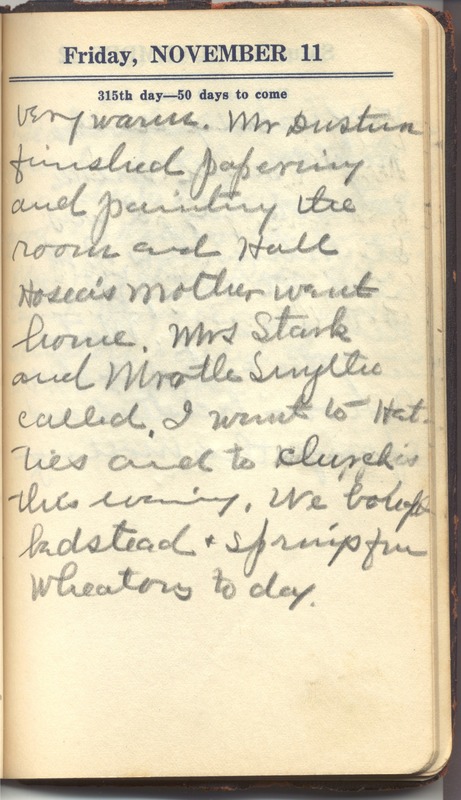 Friday, NOVEMBER 11
315th day—50 days to come
Very warm. Mr Dustun
finished papering
and painting the
room and Hall
Hosea's Mother went
home. Mrs Stark
and Mrs
called. I went to Hat-
ties and to
this evening. We bough
bedstead + springs fm
Wheatons to day.